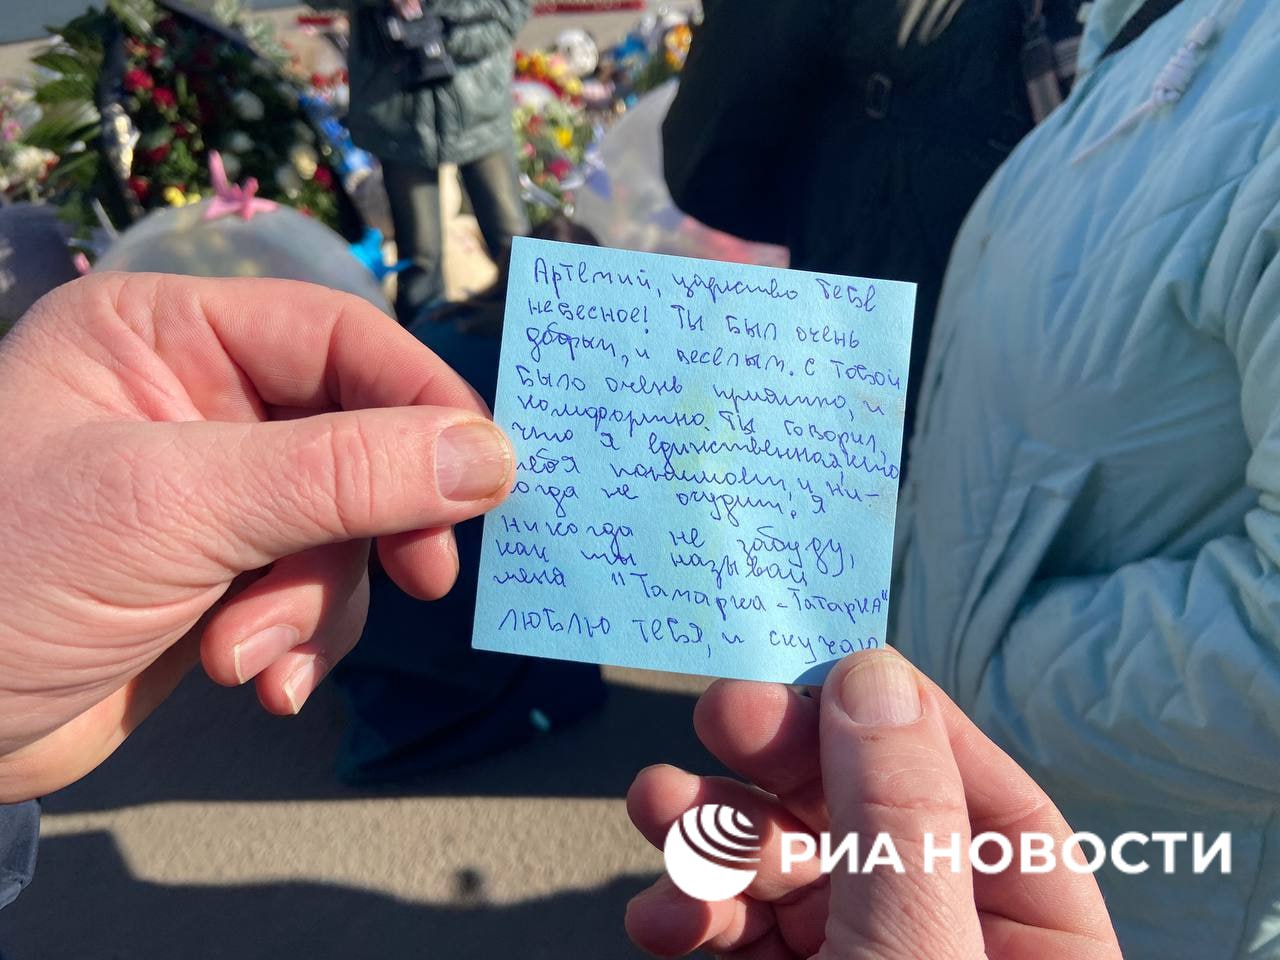 Артемий, царство тебе
небесное! Ты был очень
добрым, и веселым. С тобой
было очень приятно, и
комфортно. Ты говорил,
что я единственная, кто
тебя понимает, и ни-
когда не осудит. Я
никогда не забуду,
как ты называл
меня "Тамарка-Татарка"
люблю тебя, и скучаю
РИА НОВОСТИ